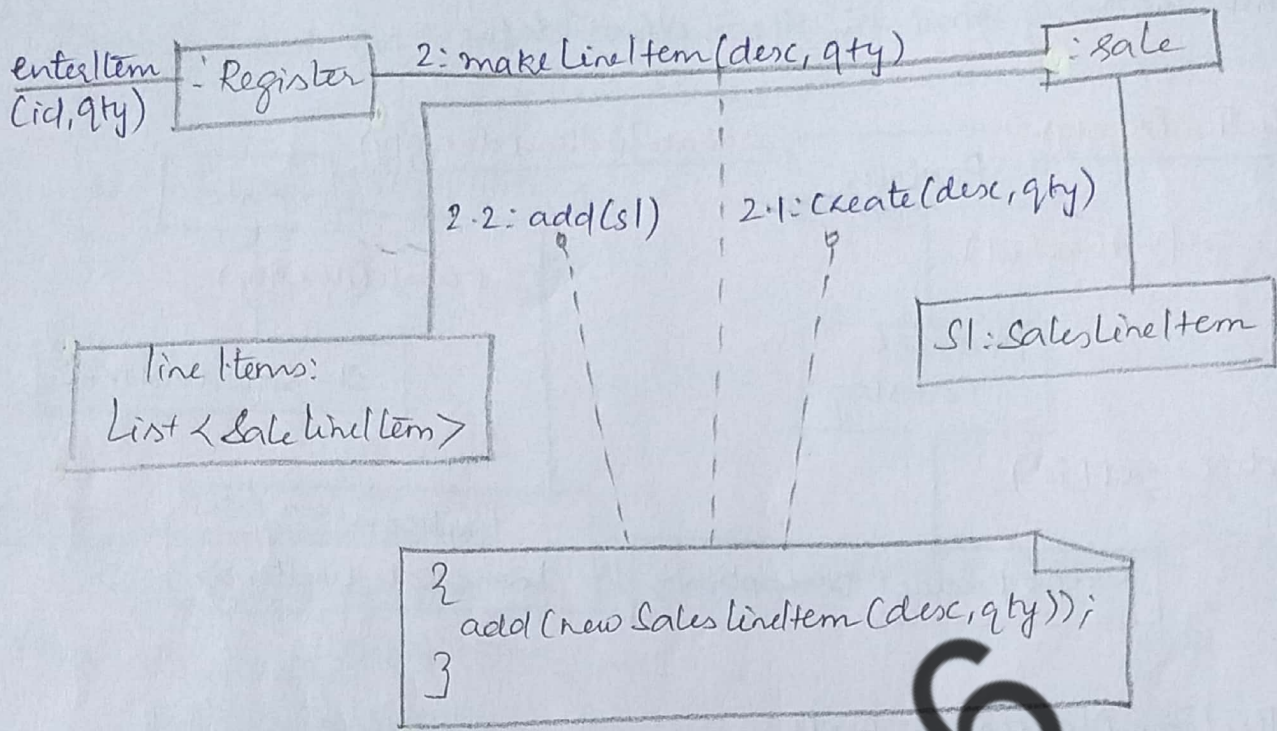 enterItem
(id, qty)
: Register
2: makeLineItem(desc, qty)
: sale
2.2: add(sl)
2.1: create(desc, qty)
lineItems:
List <SaleLineItem>
Sl: SalesLineItem
{
add (new SalesLineItem (desc, qty));
}